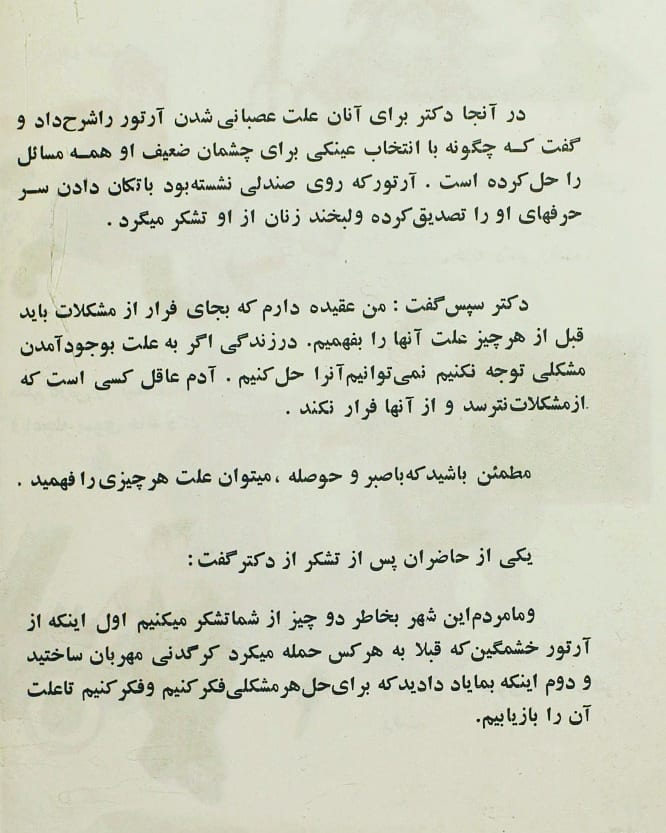 در آنجا دکتر برای آنان علت عصبانی شدن آرتور راشرح‌داد و
گفت کـه چگونه با انتخاب عینکی برای چشمان ضعیف او همـه مسائل
را حل‌کرده است . آرتورکه روی صندلی نشسته‌بود باتکان دادن سـر
حرفهای او را تصدیق‌کرده ولبخند زنان از او تشکر میگرد .
دکتر سپس‌گفت : من عقیده دارم که بجای فرار از مشکلات باید
قبل از هرچیز علت آنها را بفهمیم. درزندگی اگر به علت بوجودآمدن
مشکلی توجه نکنیم نمی‌توانیم‌آنرا حل‌کنیم . آدم عاقل کسی است که
ازمشکلات‌نترسد و از آنها فرار نکند .
مطمئن باشیدکه‌باصبر و حوصله ،میتوان علت هرچیزی را فهمید .
یکی از حاضران پس از تشکر از دکترگفت :
ومامردم‌این شهر بخاطر دو چیز از شماتشکر میکنیم اول اینکه از
آرتور خشمگین‌که قبلا به هرکس حمله میکرد کرگدنی مهربان ساختید
و دوم اینکه بمایاد دادیدکه برای‌حل‌هرمشکلی‌فکرکنیم وفکرکنیم تاعلت
آن را بازیابیم.